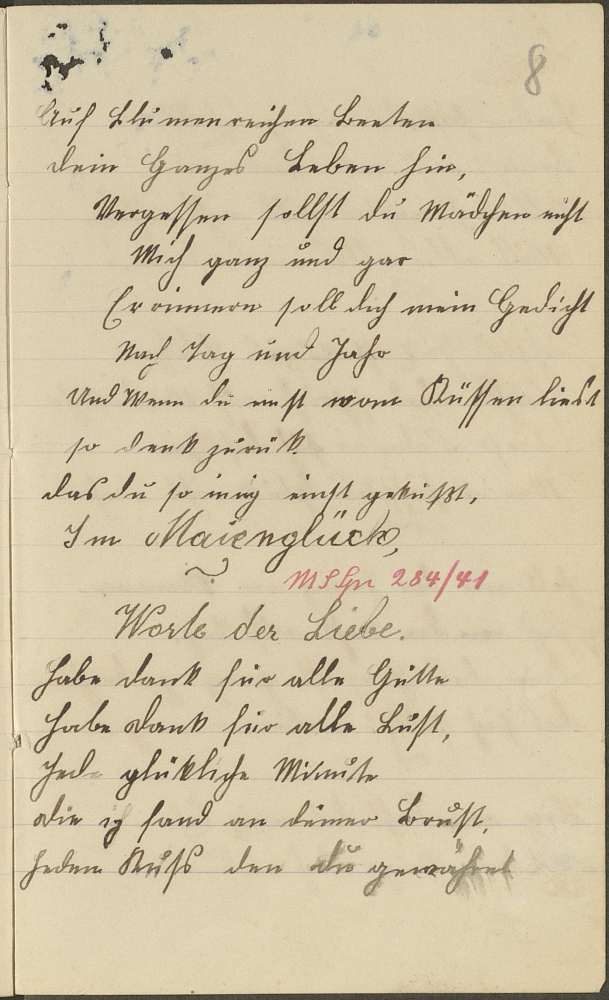 8
Auf Blumenreichen Beeten
dein Ganzes Leben hin,
Vergessen sollst du Mädchen nicht
Mich ganz und gar
Erinnern soll dich mein Gedicht
Nach Tag und Jahr
Und Wenn du einst vom Küssen liest
so denk zurük
das du so inig einst geküßt,
Im Maienglück,
MS Gr 284/41
Worte der Liebe.
Habe dank für alle Gütte
Habe dank für alle Lust,
Jede glükliche Minute
die ich fand an deiner Brust,
Jeden Kuss den du gewähret